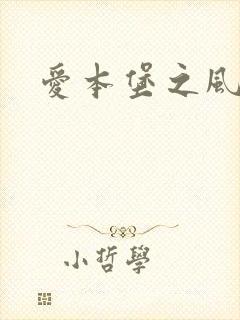 愛本堡之風
小哲學